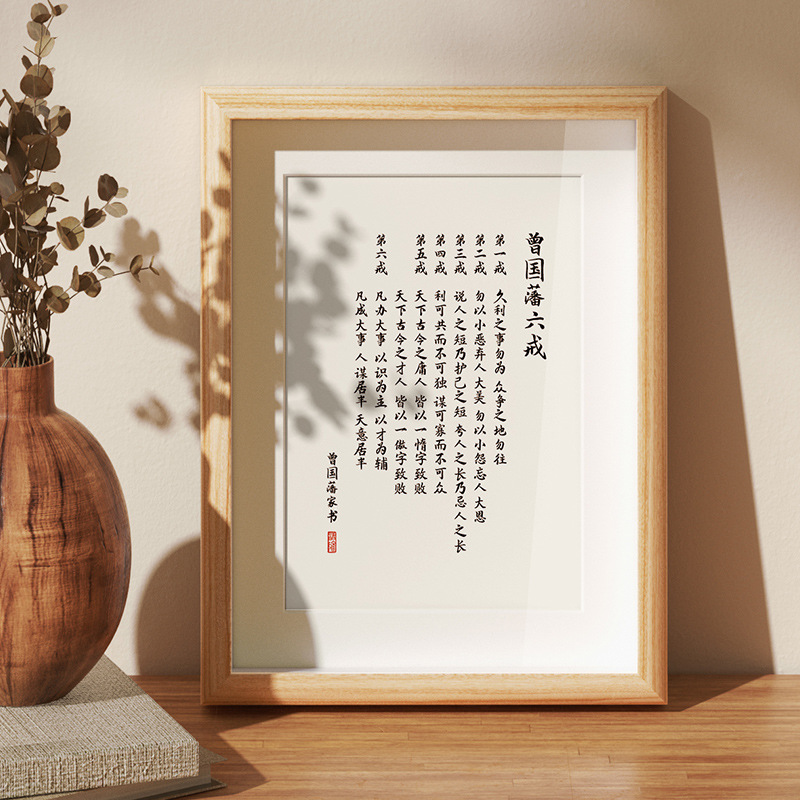 曾国藩六戒
第一戒 久利之事勿为 众争之地勿往
第二戒 勿以小恶弃人大美 勿以小怨忘人大恩
第三戒 说人之短乃护己之短 夸人之长乃忌人之长
第四戒 利可共而不可独 谋可寡而不可众
第五戒 天下古今之庸人 皆以一惰字致败
天下古今之才人 皆以一傲字致败
第六戒 凡办大事 以识为主 以才为辅
凡成大事 人谋居半 天意居半
曾国藩家书